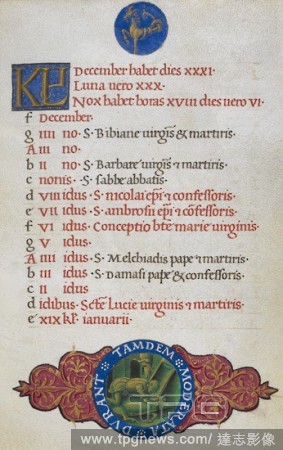 KL December habet dies XXXI.
Luna vero XXX.
Nox habet horas XVIII dies vero VI.
f December.
g IIII no. S. Bibiane virginis & martiris.
A III no.
b II no. S. Barbare virginis & martiris.
c nonis. S. sabbe abbatis.
d VIII idus. S. nicolai epi & confessoris.
e VII idus. S. ambrosii epi & cofessoris.
f VI idus. Conceptio bte marie virginis.
g V idus.
A IIII idus. S. Melchiadis pape & martiris.
b III idus. S. Damasi pape & confessoris.
c II idus
d idibus. Scte Lucie virginis & martiris.
e XIX kl. ianuarii.
TAMDEM MODERATA DVRANT
TPG
www.tpgnews.com/達志影像